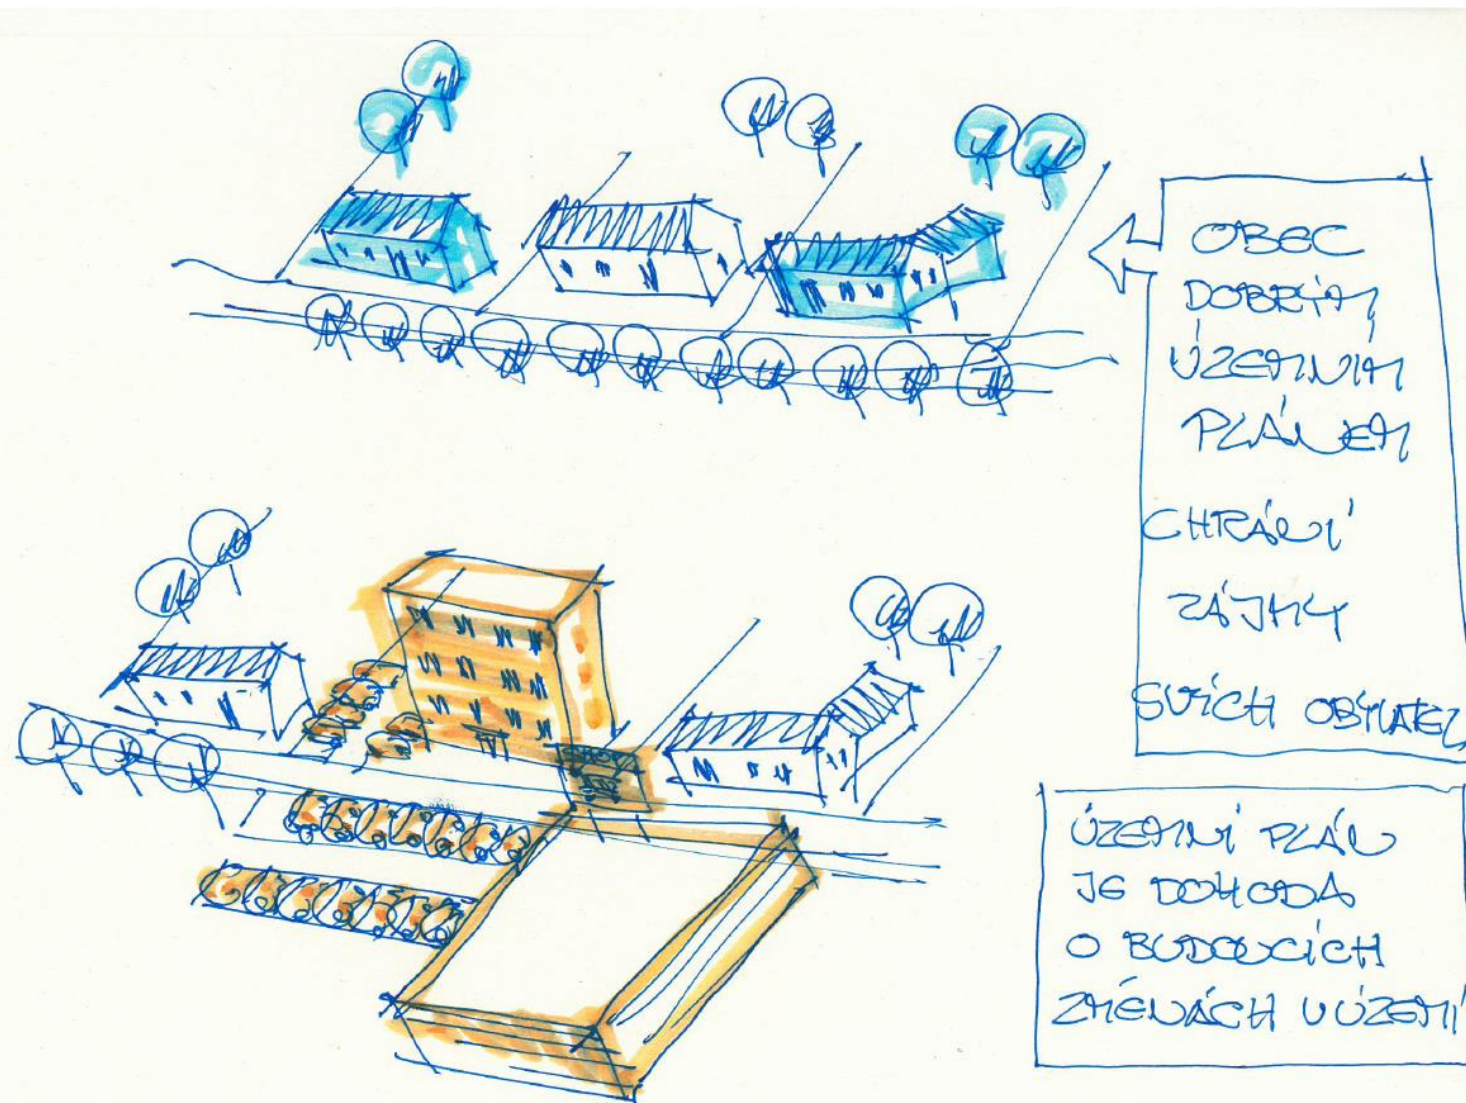 OBEC
DOBRÝM
ÚZEMNÍM
PLÁNEM
CHRÁNÍ
ZÁJMY
SVÝCH OBYVATEL
ÚZEMNÍ PLÁN
JE DOHODA
O BUDOUCÍCH
ZMĚNÁCH V ÚZEMÍ